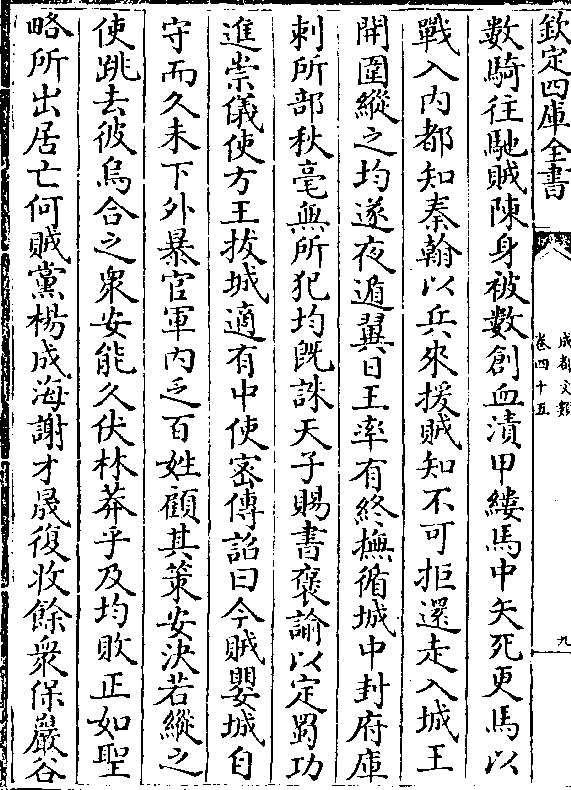 欽定四庫全書
成都文類
卷四十五
九
數騎往馳賊陳身被數創血漬甲縷馬中矢死更馬以
戰入内都知秦翰以兵來援賊知不可拒還走入城王
開圍縱之均遂夜遁翼日王率有終撫循城中封府庫
刺所部秋毫無所犯均既誅天子賜書褒諭以定蜀功
進崇儀使方王拔城適有中使密傳詔曰今賊嬰城自
守而久未下外暴官軍内乏百姓顧其策安決若縱之
使跳去彼烏合之衆安能久伏林莽乎及均敗正如聖
略所出居亡何賊黨楊成海謝才晟復收餘衆保巖谷